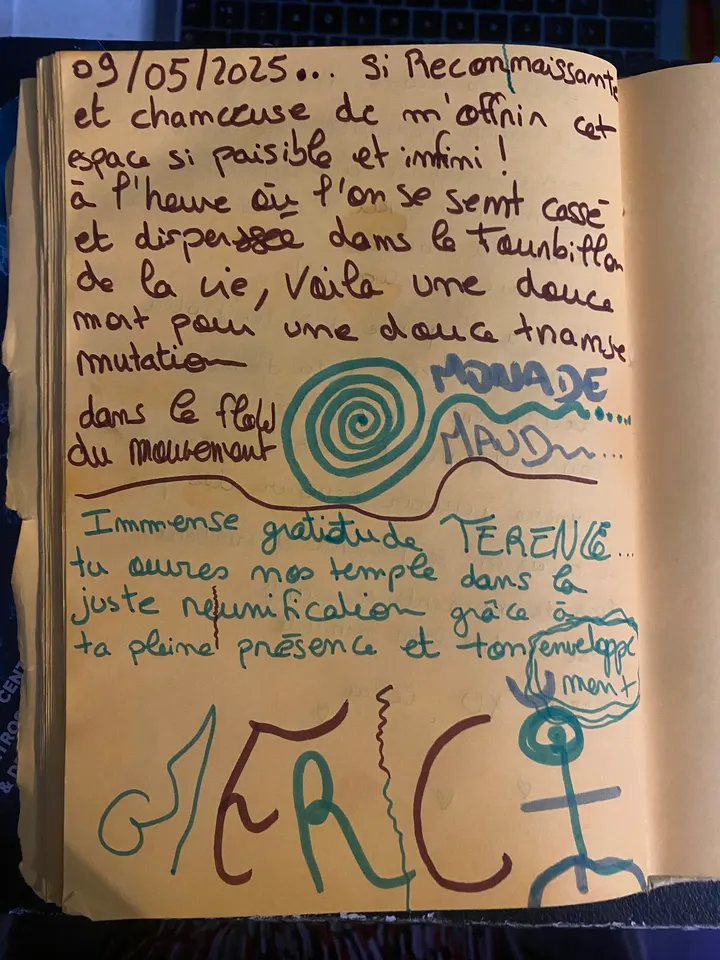 09/05/2025... si Reconnaissante
et chanceuse de m'offrir cet
espace si paisible et infini !
à l'heure où l'on se sent cassé
et disper dans le Tourbillon
de la vie, Voila une douce
mort pour une douce transe
mutation
dans le flow
du mouvement
MONADE
MAUD...
Immense gratitude TERENCE...
tu ouvres nos temple dans la
juste réunification grâce à
ta pleine présence et ton enveloppe
ment
MERCI